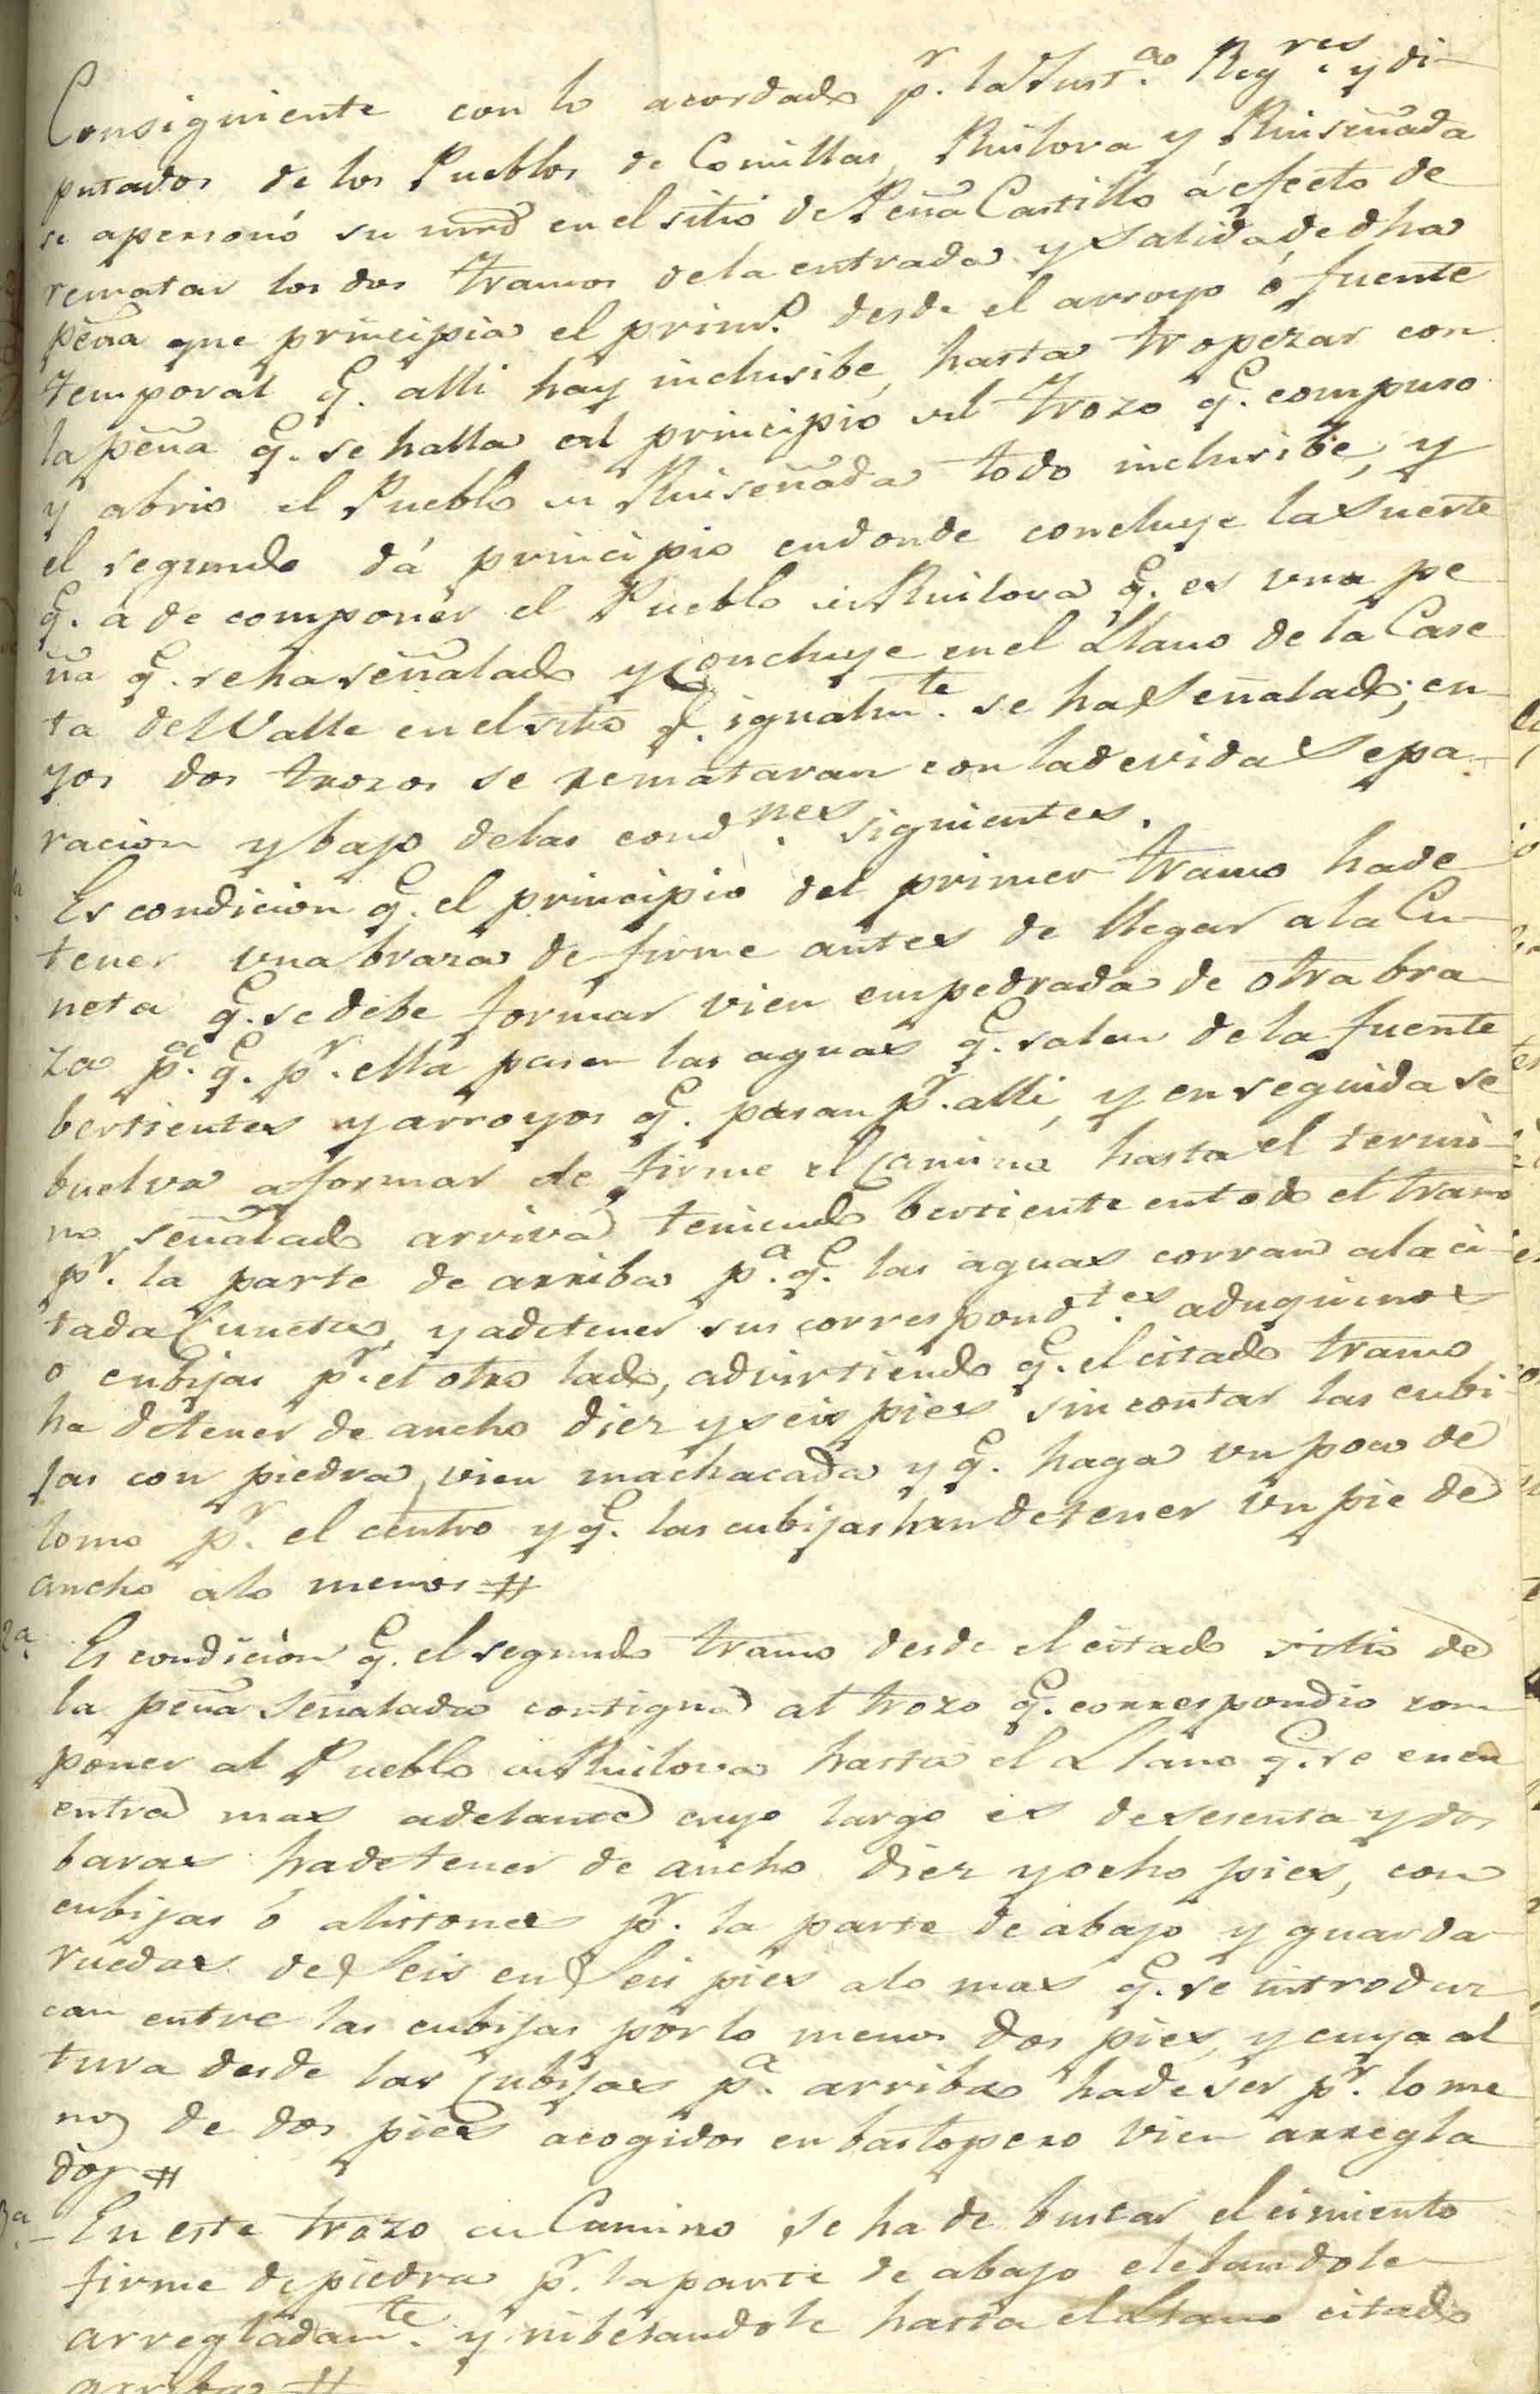 Consiguiente con lo acordado pr. la Just.ª Regres. y di-
putados de los Pueblos de Comillas, Ruilova y Ruiseñada
se apersonó su mrd en el sitio de Peña Castillo á efecto de
rematar los dos tramos de la entrada y salida de dha
peña que principia el prim.º desde el arroyo ó fuente
temporal q. alli hay inclusibe, hasta tropezar con
la peña q. se halla al principio del trozo q. compuso
y abrio el Pueblo de Ruiseñada todo inclusibe, y
el segundo dá principio en donde concluye la Suerte
q. a de componer el Pueblo de Ruilova q. es una pe
ña q. se ha señalado y Concluye en el Llano de la Case
ta del Valle en el sitio q. igualmte. se ha Señalado; cu-
yos dos trozos se remataran con la devida Sepa-
racion y bajo de las condnes. siguientes.
Es condicion q. el principio del primer tramo ha de
tener una braza de firme antes de llegar a la Cu-
neta q. se debe formar vien empedrada de otra bra-
za pª. q. pr. ella pasen las aguas q. salen de la fuente
bertientes y arroyos q. pasan pr. alli, y en seguida se
buelva a formar de firme el Camino hasta el termi-
no señalado arriva teniendo bertiente en todo el tramo
pr. la parte de arriba pª. q. las aguas corran a la ci-
tada Cuneta, y a de tener sus correspondtes. aduquines
o cubijas pr. el otro lado, advirtiendo q. el citado tramo
ha de tener de ancho diez y seis pies sin contar las cubi-
jas con piedra vien machacada y q. haga un poco de
lomo pr. el centro y q. las cubijas han de tener un pie de
ancho a lo menos #
2ª. Es condicion q. el segundo tramo desde el citado sitio de
la peña Señalada contigua al trozo q. correspondio com
poner al Pueblo de Ruilova hasta el Llano q. se encu
entra mas adelante cuyo largo es de sesenta y dos
baras ha de tener de ancho diez y ocho pies, con
cubijas ó alistones pr. la parte de abajo y guarda
ruedas de Seis en Seis pies a lo mas q. se introduz
can entre las cubijas por lo menos dos pies, y cuya al
tura desde las Cubijas pª. arriba ha de ser pr. lo me
nos de dos pies acogidos en bastopero vien arregla
dos #
3ª. En este trozo de Camino se ha de buscar el cimiento
firme de piedra pr. la parte de abajo elebandole
arregladamte. y nibelandole hasta el Llano citado
arriba #